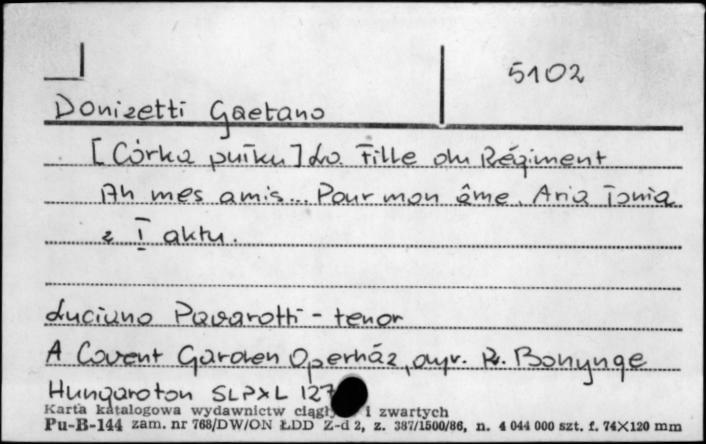 5102
Donizetti Gaetano
[Córka pułku] La Fille du Régiment
Ah mes amis... Pour mon âme. Aria Tonia
z I aktu.
Luciano Pavarotti - tenor
A Covent Garden Operház, dyr. R. Bonynge
Hungaroton SLPXL 127
Karta katalogowa wydawnictw i zwartych
Pu-B-144 zam. nr 768/DW/ON ŁDD Z-d 2, z. 387/1500/86, n. 4 044 000 szt. f. 74×120 mm